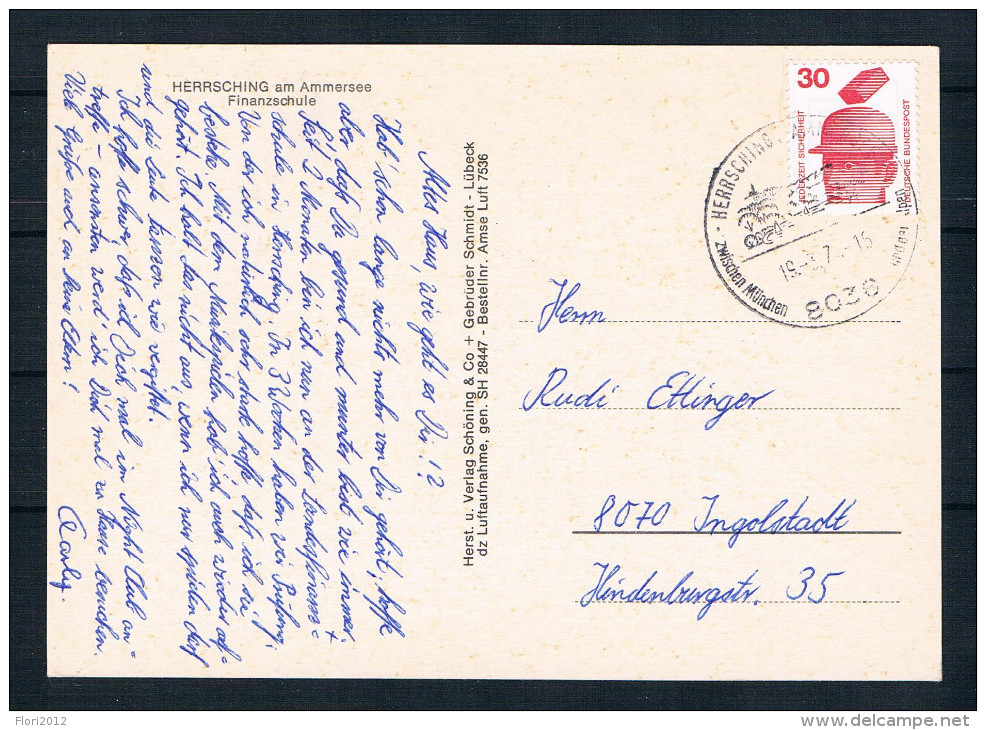 HERRSCHING am Ammersee
Finanzschule
Altes Haus, wie geht es Dir!?
Hab' schon lange nichts mehr von Dir gehört, hoffe
aber daß Du gesund und munter bist wie immer.
Seit 2 Monaten bin ich nun an der Landesfinanz=
schule in Herrsching. In 3 Wochen haben wir Prüfung,
Von der ich natürlich sehr stark hoffe daß ich sie
bestehe. Mit dem Musikspielen hab' ich auch wieder auf-
gehört. Ich halt' das nicht aus, wenn ich nur spielen darf
und die Leute hassen wie vergiftet.
Ich hoffe schwer, daß ich Dich mal im Night Club an=
treffe - ansonsten werd' ich Dich mal zu Hause besuchen.
Viele Grüße auch an Deine Eltern!
Herst. u. Verlag Schöning & Co + Gebrüder Schmidt - Lübeck
dz Luftaufnahme, gen. SH 28447 - Bestellnr. Amse Luft 7536
30
JEDERZEIT SICHERHEIT
DEUTSCHE BUNDESPOST
HERRSCHING
zwischen München
8036
Herrn
Rudi Ettinger
8070 Ingolstadt
Hindenburgstr. 35
Flori2012
delcampe.net